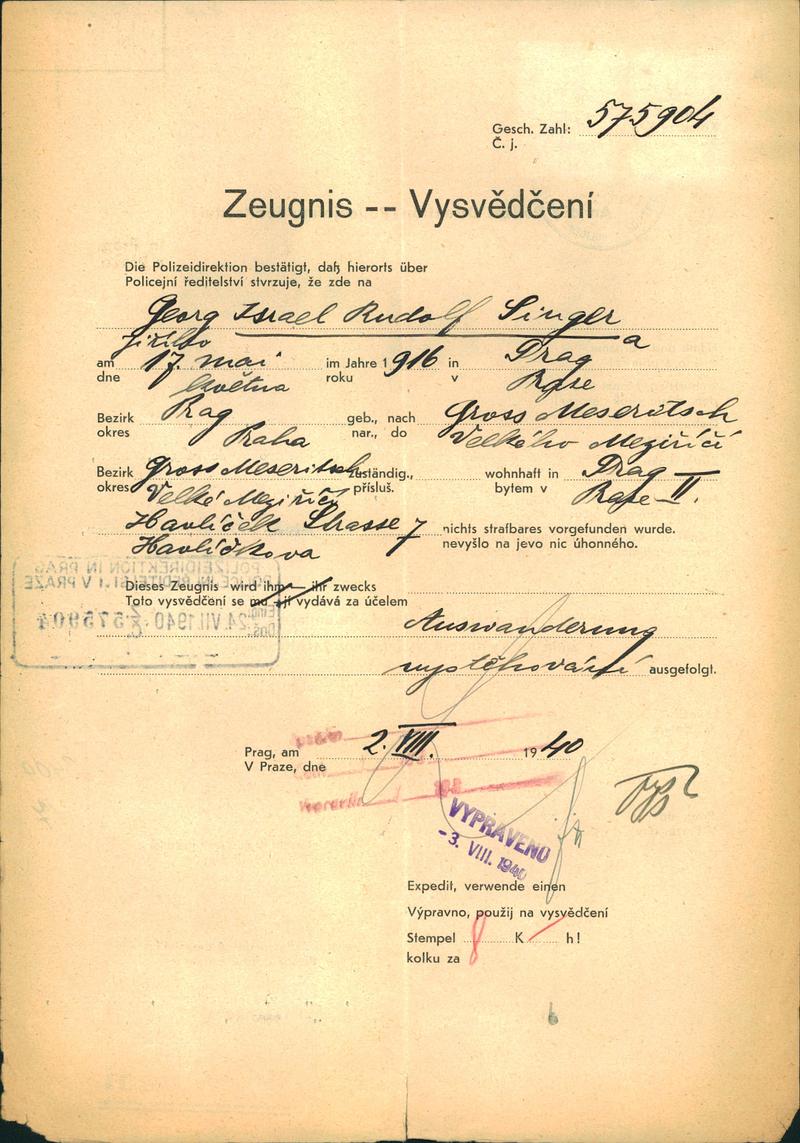 Gesch. Zahl: 575904
Č. j.
Zeugnis -- Vysvědčení
Die Polizeidirektion bestätigt, daß hierorts über
Policejní ředitelství stvrzuje, že zde na
Georg Israel Rudolf Singer
a
am 17. Mai im Jahre 1916 in Prag
dne května roku v Praze
Bezirk Prag geb., nach Gross Meseritsch
okres Praha nar., do Velkého Meziříčí
Bezirk Gross Meseritsch zuständig., wohnhaft in Prag
okres Velké Meziříčí přísluš. bytem v Praze II.
Havlíček Strasse 7 nichts strafbares vorgefunden wurde.
Havlíčkova nevyšlo na jevo nic úhonného.
POLIZEIDIREKTION IN PRAG
V PRAZE
24. VII. 1940 575904
Dieses Zeugnis wird ihm — ihr zwecks
Toto vysvědčení se mu — jí vydává za účelem
Auswanderung
vystěhování ausgefolgt.
Prag, am 2. VIII. 1940
V Praze, dne
VYPRAVENO
- 3. VIII. 1940
Expedit, verwende einen
Výpravno, použij na vysvědčení
Stempel 8 K h!
kolku za